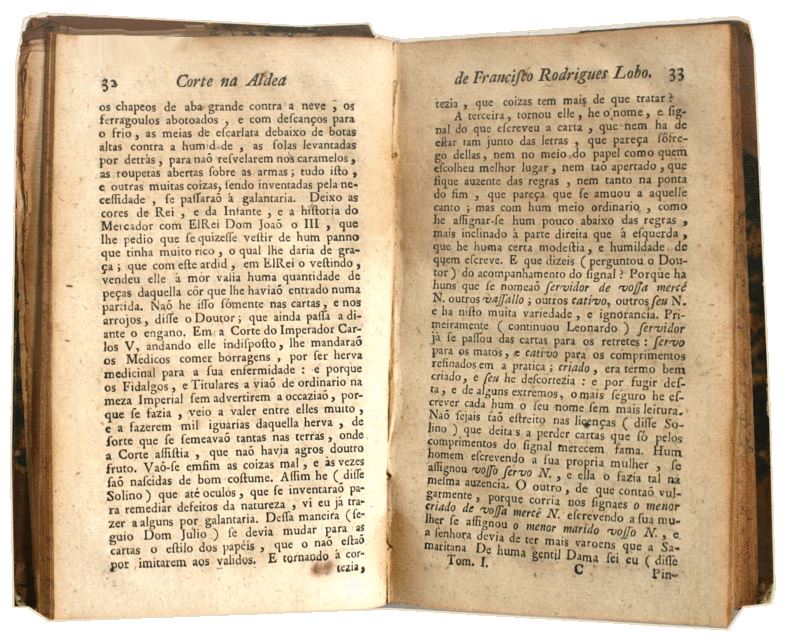 32 Corte na Aldea
os chapeos de aba grande contra a neve, os
ferragoulos abotoados, e com descanços para
o frio, as meias de escarlata debaixo de botas
altas contra a humidade, as solas levantadas
por detrás, para naõ resvelarem nos caramelos,
as roupetas abertas sobre as armas; tudo isto,
e outras muitas coizas, sendo inventadas pela ne-
cessidade, se passaraõ à galantaria. Deixo as
cores de Rei, e da Intante, e a historia do
Mercador com ElRei Dom Joaõ o III, que
lhe pedio que se quizesse vestir de hum panno
que tinha muito rico, o qual lhe daria de gra-
ça; que com este ardid, em ElRei o vestindo,
vendeu elle a mór valia huma quantidade de
peças daquella côr que lhe haviaõ entrado numa
partida. Naõ he isso sómente nas cartas, e nos
arrojos, disse o Doutor; que ainda passa a di-
ante o engano. Em a Corte do Imperador Car-
los V, andando elle indisposto, lhe mandaraõ
os Medicos comer borragens, por ser herva
medicinal para a sua enfermidade: e porque
os Fidalgos, e Titulares a viaõ de ordinario na
meza Imperial sem advertirem a occaziaõ, por-
que se fazia, veio a valer entre elles muito,
e a fazerem mil iguarias daquella herva, de
sorte que se semeavaõ tantas nas terras, onde
a Corte assistia, que naõ havia agros doutro
fruto. Vaõ-se emfim as coizas mal, e às vezes
saõ nascidas de bom costume. Assim he (disse
Solino) que até oculos, que se inventaraõ pa-
ra remediar defeitos da natureza, vi eu já tra-
zer a alguns por galantaria. Dessa maneira (se-
guio Dom Julio) se devia mudar para as
cartas o estilo dos papéis, que o naõ estaõ
por imitarem aos validos. E tornando à cor-
tezia,
de Francisco Rodrigues Lobo. 33
tezia, que coizas tem mais de que tratar?
A terceira, tornou elle, he o nome, e sig-
nal do que escreveu a carta, que nem ha de
estar tam junto das letras, que pareça sôfre-
go dellas, nem no meio do papel como quem
escolheu melhor lugar, nem taõ apertado, que
fique auzente das regras, nem tanto na ponta
do fim, que pareça que se amuou a aquelle
canto; mas com hum meio ordinario, como
he assignar-se hum pouco abaixo das regras,
mais inclinado à parte direita que à esquerda,
que he huma certa modestia, e humildade de
quem escreve. E que dizeis (perguntou o Dou-
tor) do acompanhamento do signal? Porque ha
huns que se nomeaõ servidor de vossa mercê
N. outros vassallo; outros cativo, outros seu N.
e ha nisto muita variedade, e ignorancia. Pri-
meiramente (continuou Leonardo) servidor
já se passou das cartas para os retretes: servo
para os matos, e cativo para os comprimentos
refinados em a pratica; criado, era termo bem
criado, e seu he descortezia: e por fugir des-
ta, e de alguns extremos, o mais seguro he es-
crever cada hum o seu nome sem mais leitura.
Naõ sejais taõ estreito nas licenças (disse So-
lino) que deitais a perder cartas que só pelos
comprimentos do signal merecem fama. Hum
homem escrevendo a sua propria mulher, se
assignou vosso servo N., e ella o fazia tal na
mesma auzencia. O outro, de que contaõ vul-
garmente, porque corria nos signaes o menor
criado de vossa mercê N. escrevendo a sua mu-
lher se assignou o menor marido vosso N., e
a senhora devia de ter mais varoens que a Sa-
maritana De huma gentil Dama sei eu (disse
Tom. I. C Pin-